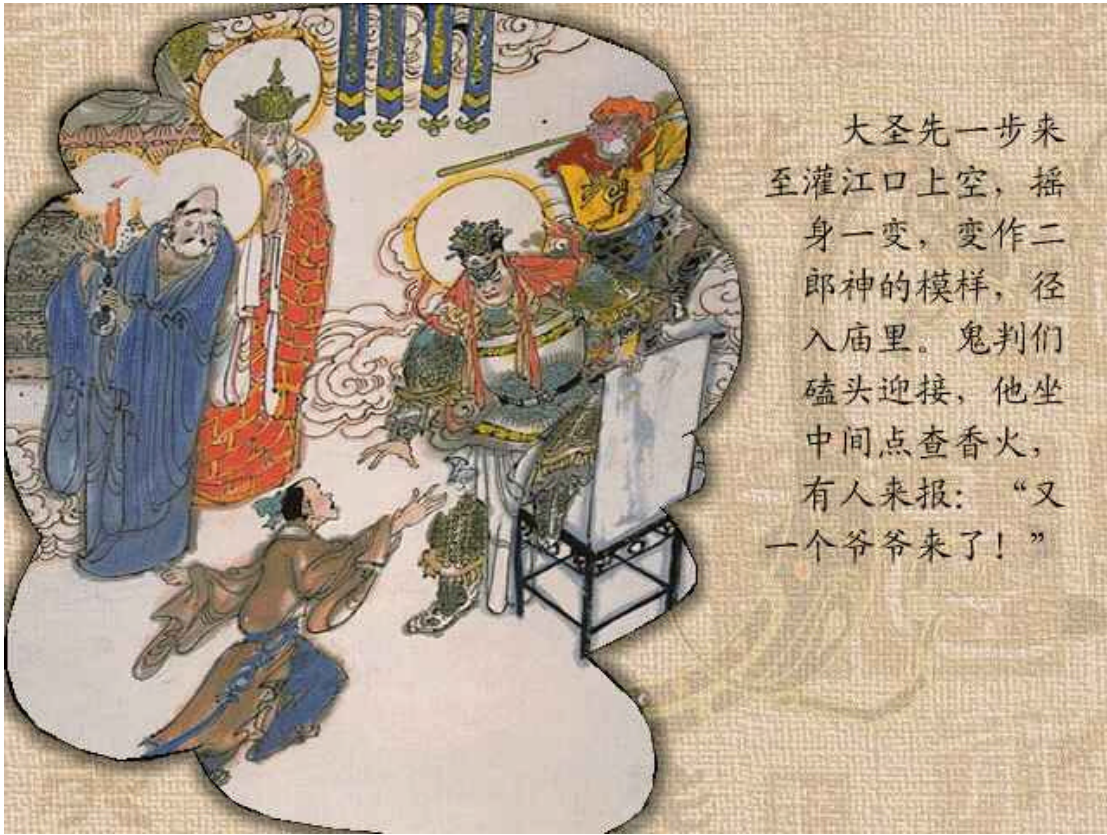 大圣先一步来
至灌江口上空，摇
身一变，变作二
郎神的模样，径
入庙里。鬼判们
磕头迎接，他坐
中间点查香火，
有人来报：“又
一个爷爷来了！”